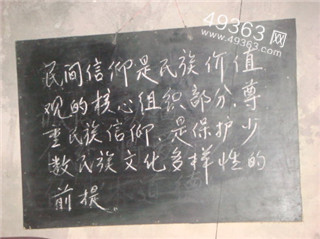 49363网
www.49363.com
民间信仰是民族价值
观的核心组织部分,尊
重民族信仰,是保护少
数民族文化多样性的
前提。